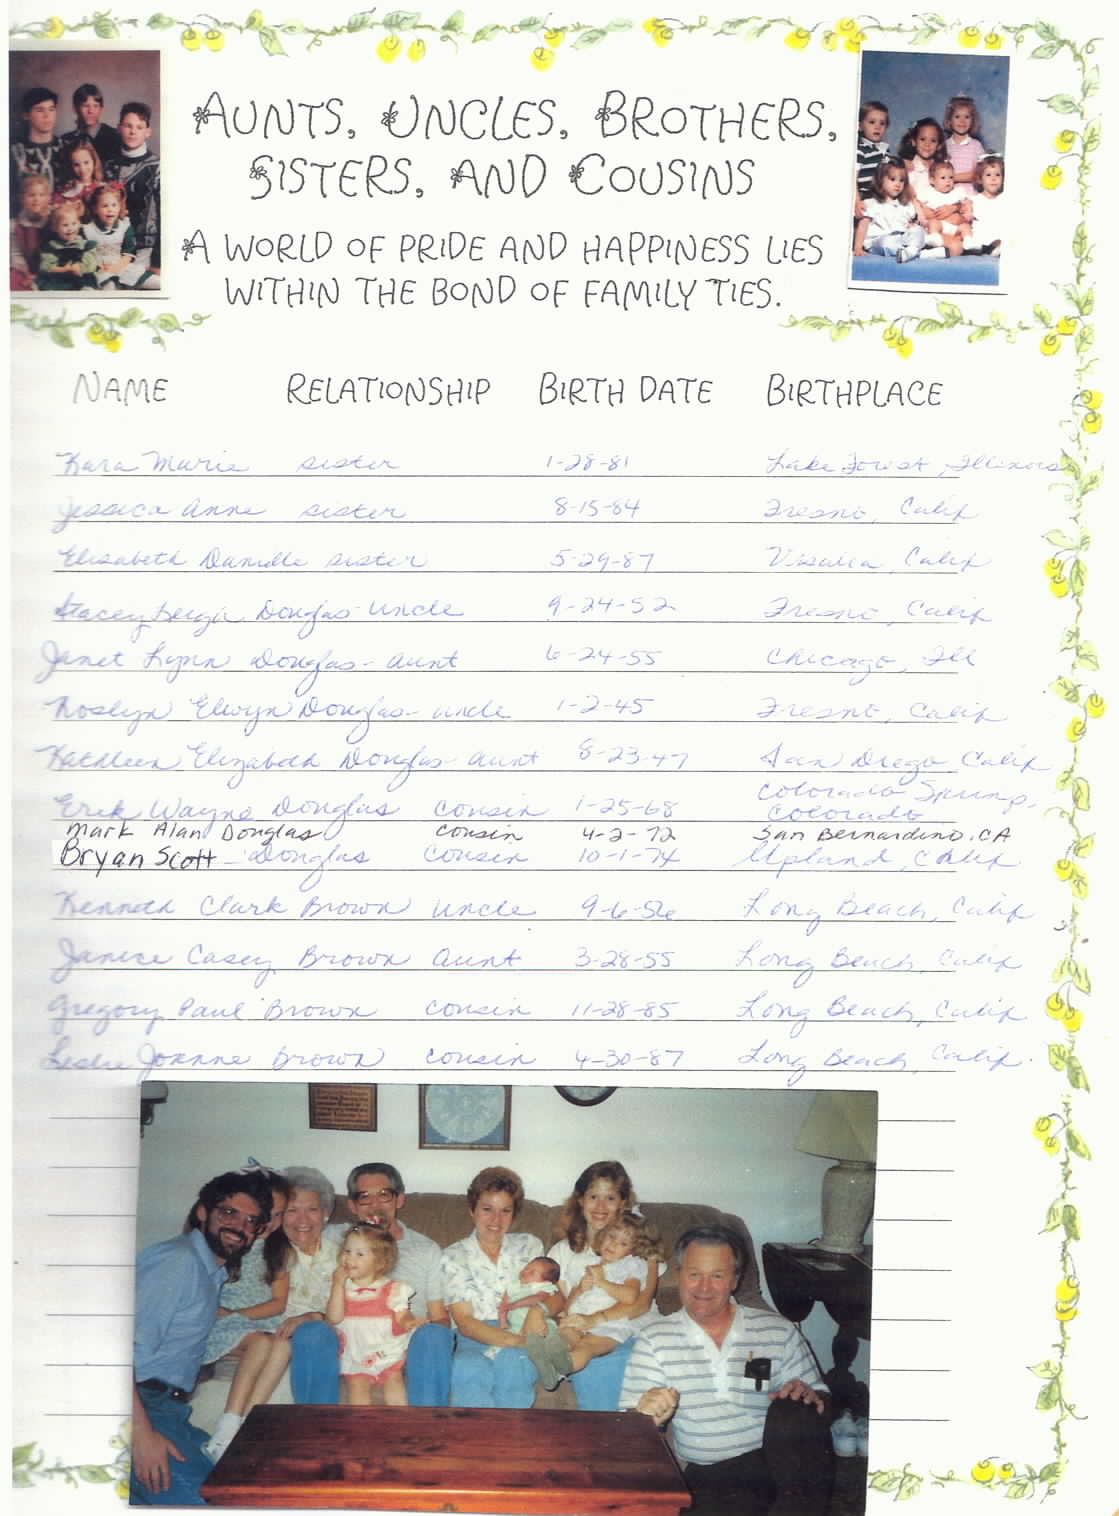 AUNTS, UNCLES, BROTHERS,
SISTERS, AND COUSINS
A WORLD OF PRIDE AND HAPPINESS LIES
WITHIN THE BOND OF FAMILY TIES.
NAME RELATIONSHIP BIRTH DATE BIRTHPLACE
Kara Marie sister 1-28-81 Lake Forest, Illinois
Jessica Anne sister 8-15-84 Fresno, Calif
Elisabeth Danielle sister 5-29-87 Visalia, Calif
Stacey Douglas - Uncle 9-24-52 Fresno, Calif
Janet Lynn Douglas - aunt 6-24-55 Chicago, Ill
Roslyn Elwyn Douglas - uncle 1-2-45 Fresno, Calif
Kathleen Elizabeth Douglas - aunt 8-23-47 San Diego Calif
Erik Wayne Douglas cousin 1-25-68 Colorado Springs, Colorado
Mark Alan Douglas cousin 4-2-72 San Bernardino, CA
Bryan Scott - Douglas cousin 10-1-74 Upland, Calif.
Kenneth Clark Brown Uncle 9-6-56 Long Beach, Calif
Janice Casey Brown Aunt 3-28-55 Long Beach, Calif
Gregory Paul Brown cousin 11-28-85 Long Beach, Calif
Leslie Joanne Brown cousin 4-30-87 Long Beach, Calif.